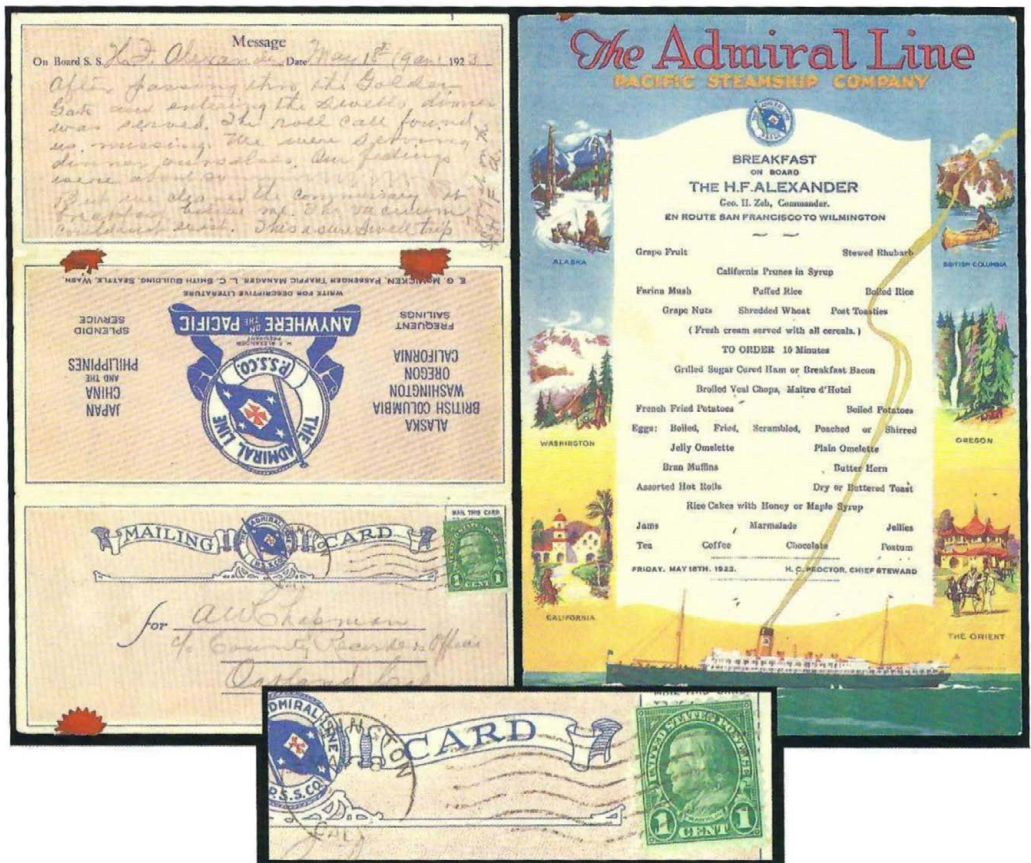 Message
On Board S. S. H. F. Alexander Date May 18th 9 am 1923
After passing thru the Golden
Gate and entering the swells, dinner
was served. The roll call found
us missing. We were serving
dinner ourselves. Our feelings
were about so
cleaned the commissary at
breakfast believe me. vacuum
couldnt This is a sure swell trip
E. G. McMICKEN, PASSENGER TRAFFIC MANAGER, L. C. SMITH BUILDING, SEATTLE, WASH
WRITE FOR DESCRIPTIVE LITERATURE
SPLENDID
SERVICE
ANYWHERE ON THE PACIFIC
FREQUENT
SAILINGS
H. F. ALEXANDER
PRESIDENT
P.S.S.CO.
THE ADMIRAL LINE
JAPAN
CHINA
AND THE
PHILIPPINES
ALASKA
BRITISH COLUMBIA
WASHINGTON
OREGON
CALIFORNIA
MAIL THIS CARD
MAILING CARD
ADMIRAL LINE
P.S.S.CO.
1 CENT 1
for A W Chapman
c/o County Recorders Office
Oakland Cal
The Admiral Line
PACIFIC STEAMSHIP COMPANY
BREAKFAST
ON BOARD
THE H.F. ALEXANDER
Geo. H. Zeh, Commander.
EN ROUTE SAN FRANCISCO TO WILMINGTON
Grape Fruit Stewed Rhubarb
California Prunes in Syrup
Farina Mush Puffed Rice Boiled Rice
Grape Nuts Shredded Wheat Post Toasties
(Fresh cream served with all cereals.)
TO ORDER 10 Minutes
Grilled Sugar Cured Ham or Breakfast Bacon
Broiled Veal Chops, Maitre d'Hotel
French Fried Potatoes Boiled Potatoes
Eggs: Boiled, Fried, Scrambled, Poached or Shirred
Jelly Omelette Plain Omelette
Bran Muffins Butter Horn
Assorted Hot Rolls Dry or Buttered Toast
Rice Cakes with Honey or Maple Syrup
Jams Marmalade Jellies
Tea Coffee Chocolate Postum
FRIDAY, MAY 18TH, 1923. H. C. PROCTOR, CHIEF STEWARD
ALASKA
BRITISH COLUMBIA
WASHINGTON
OREGON
CALIFORNIA
THE ORIENT
MAIL THIS CARD
ADMIRAL LINE
P.S.S.CO.
CARD
UNITED STATES POSTAGE
FRANKLIN
1 CENT 1